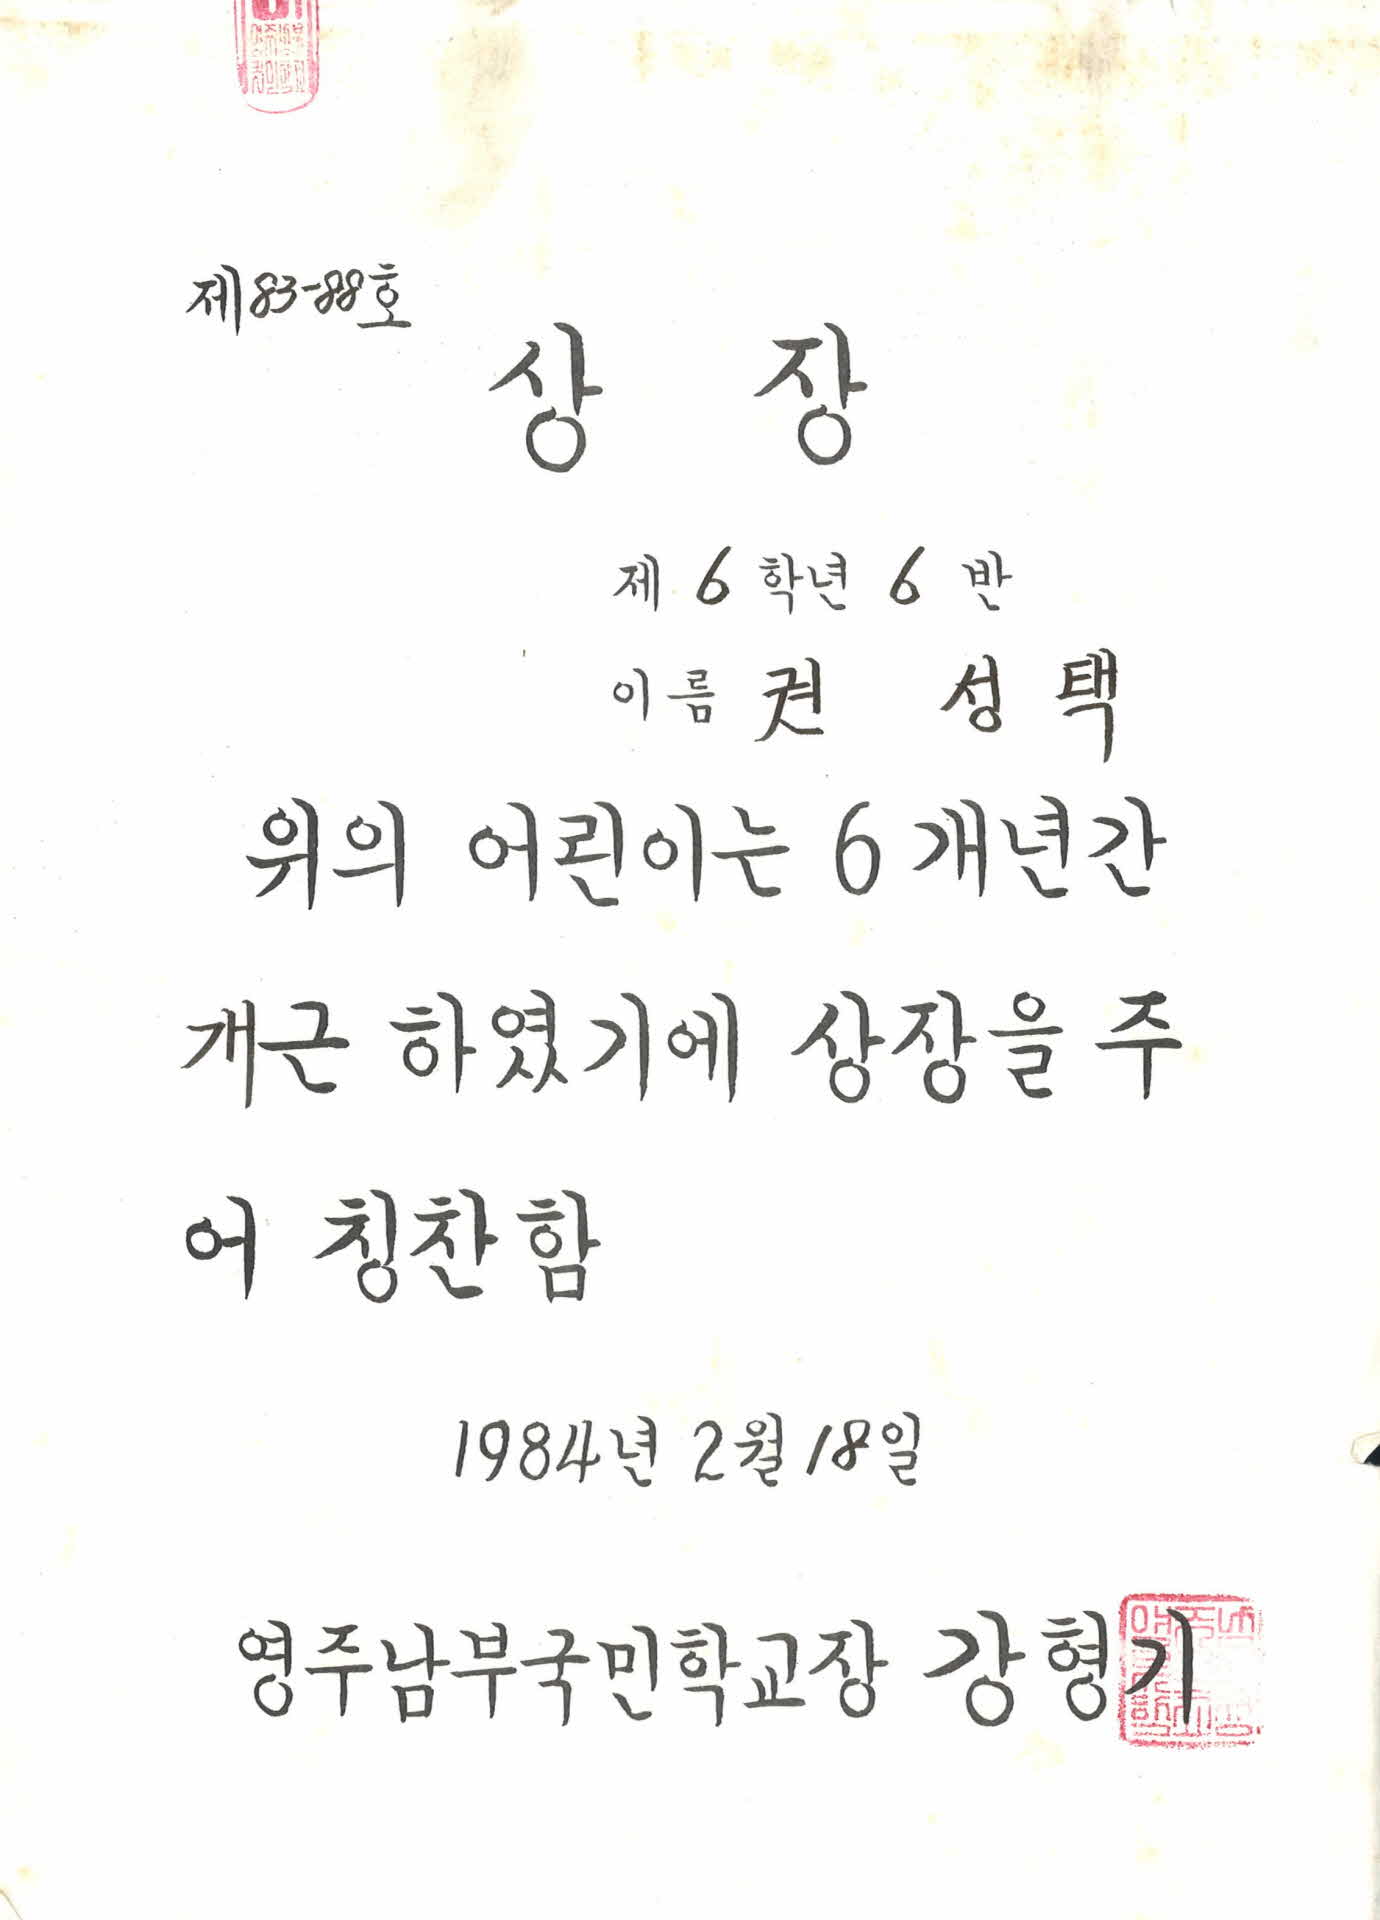 제83-88호
상 장
제 6 학년 6 반
이름 권 성 택
위의 어린이는 6개년간
개근 하였기에 상장을 주
어 칭찬함
1984년 2월 18일
영주남부국민학교장 강형기